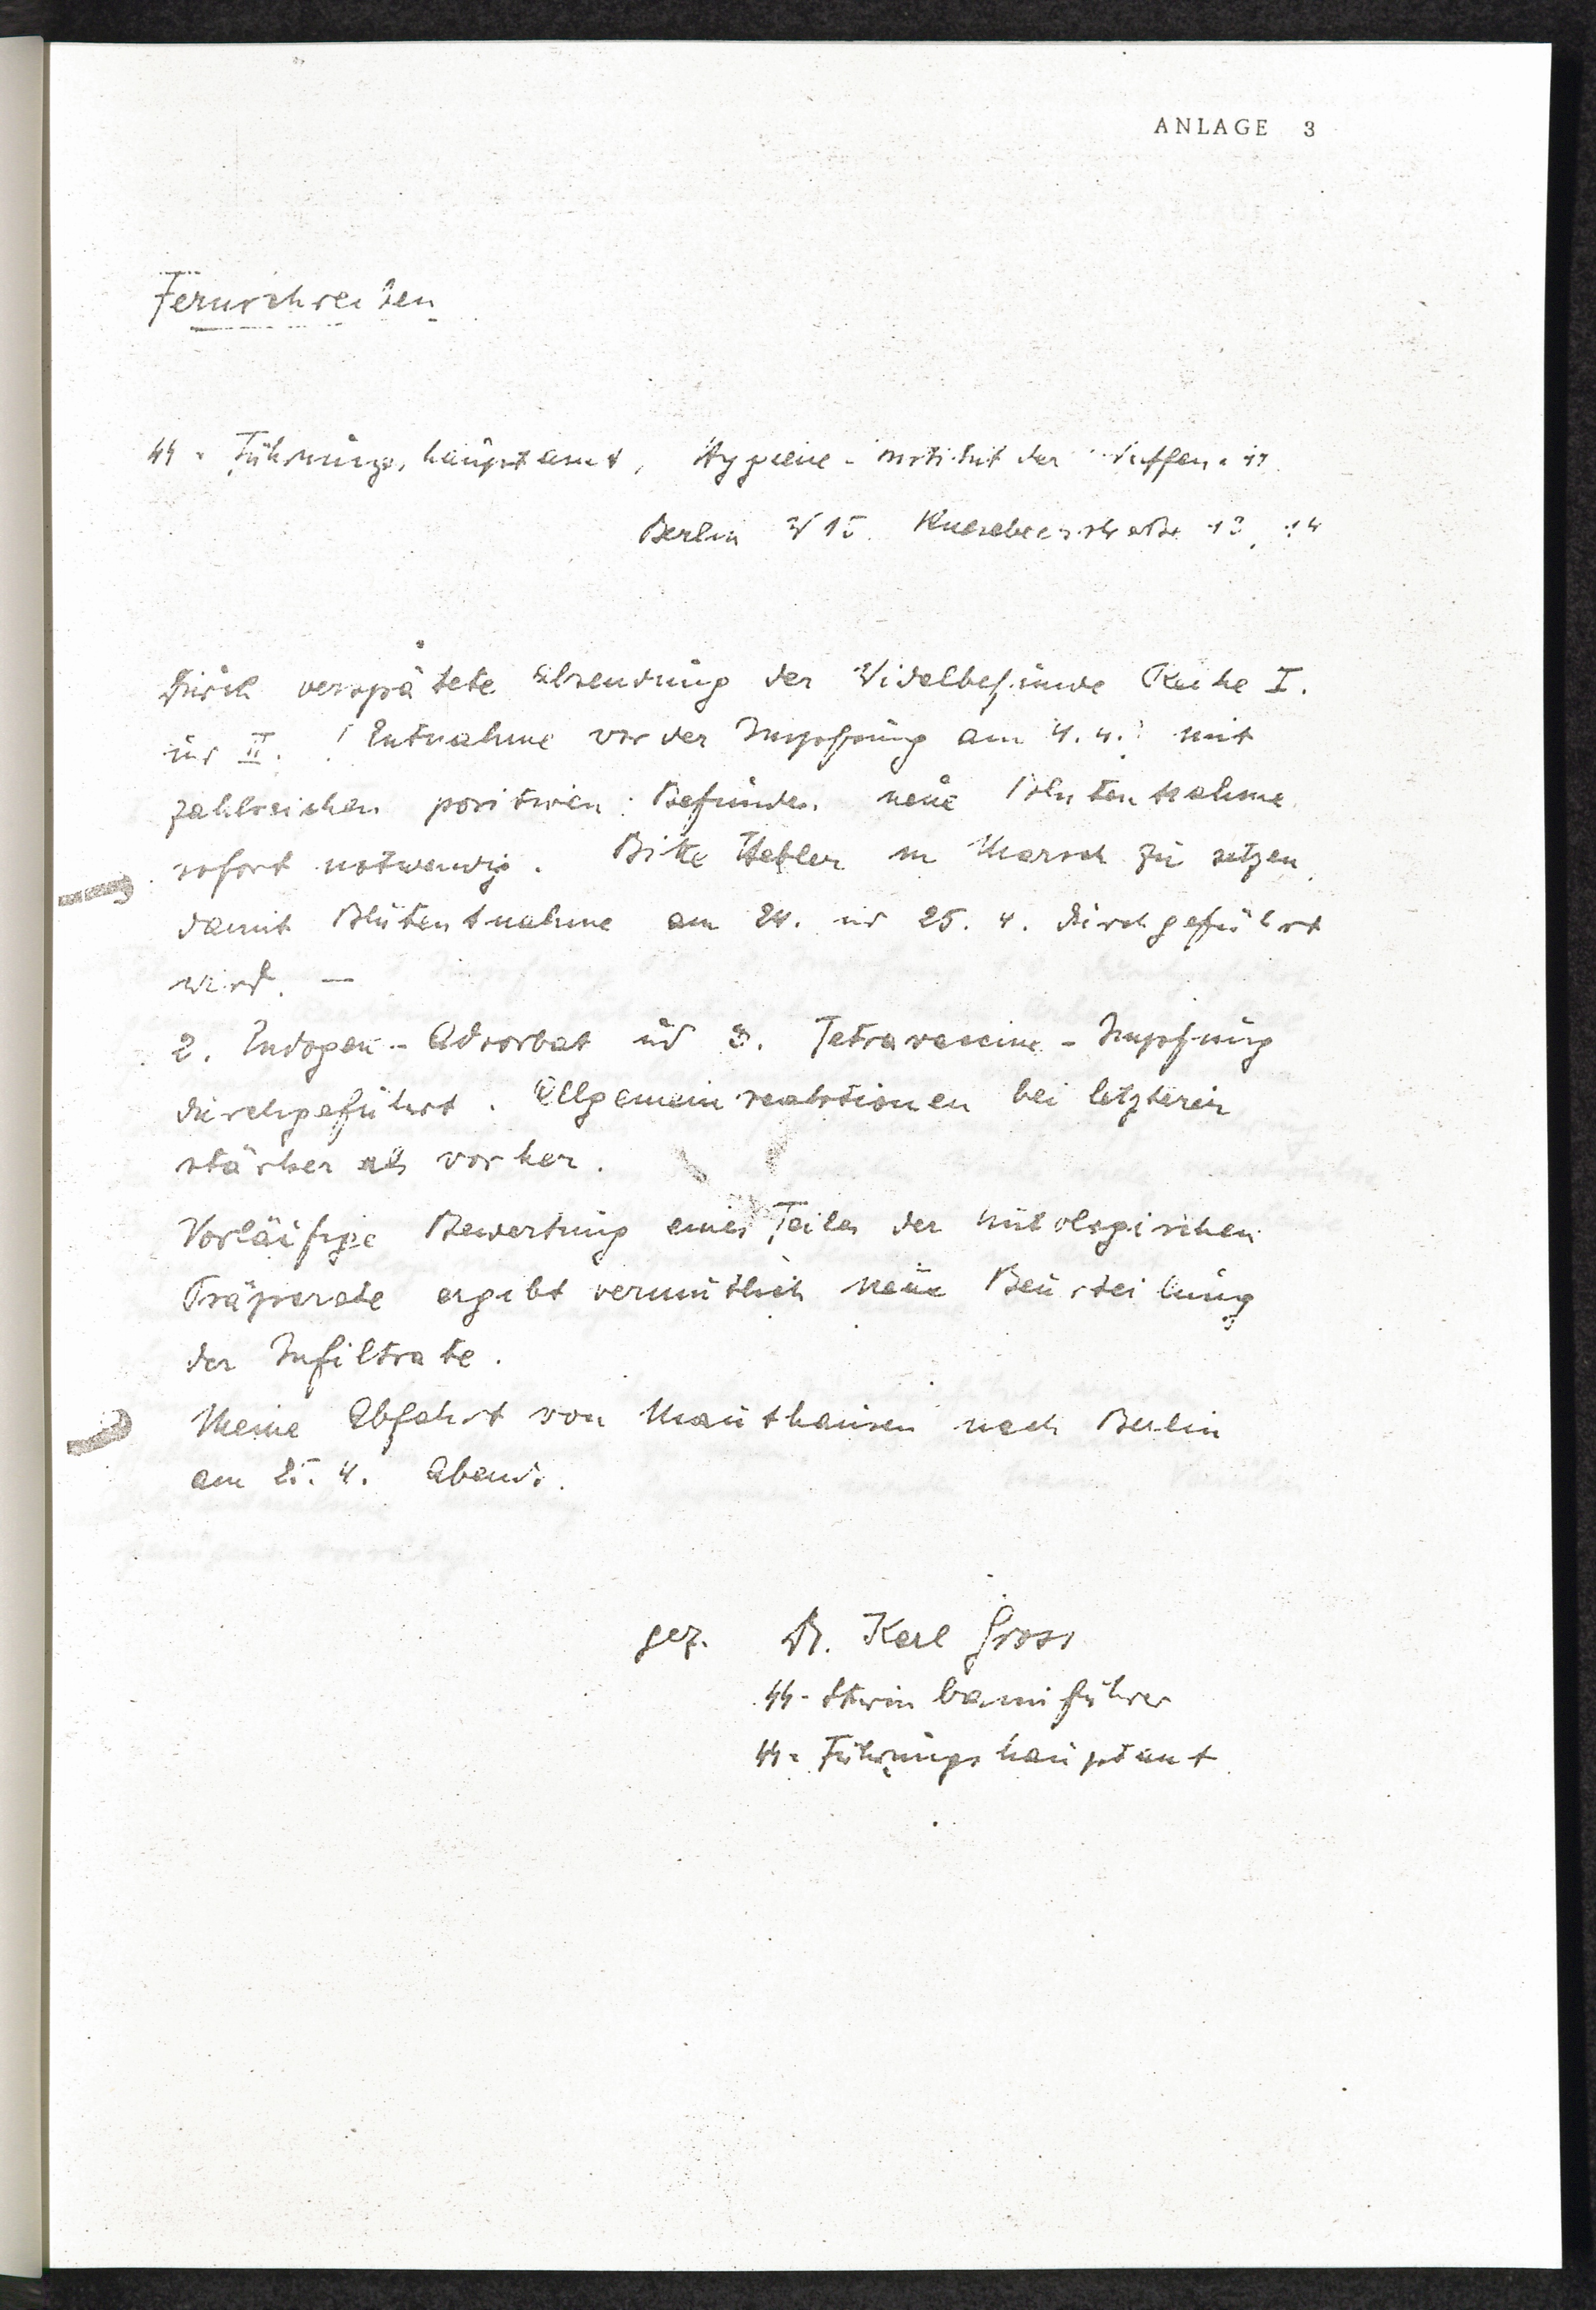 ANLAGE 3
Fernschreiben
SS-Führungshauptamt, Hygiene-Institut der Waffen-SS
Berlin W 15. Knesebeckstraße 13, 14
Durch verspätete Absendung der Widalbefunde Reihe I.
und II. (Entnahme vor der Impfung am 4.4.) mit
zahlreichen positiven Befunden neue Blutentnahme
sofort notwendig. Bitte in Marsch zu setzen,
damit Blutentnahme am 24. und 25. 4. durchgeführt
wird. —
2. Adsorbat und 3. Tetravaccine-Impfung
durchgeführt. Allgemeinreaktionen bei letzterer
stärker als vorher.
Vorläufige Bewertung eines Teiles der histologischen
Präparate ergibt vermutlich neue Beurteilung
der Infiltrate.
Meine Abfahrt von Mauthausen nach Berlin
am 25. 4. Abends.
gez. Dr. Karl Gross
SS-Sturmbannführer
SS-Führungshauptamt